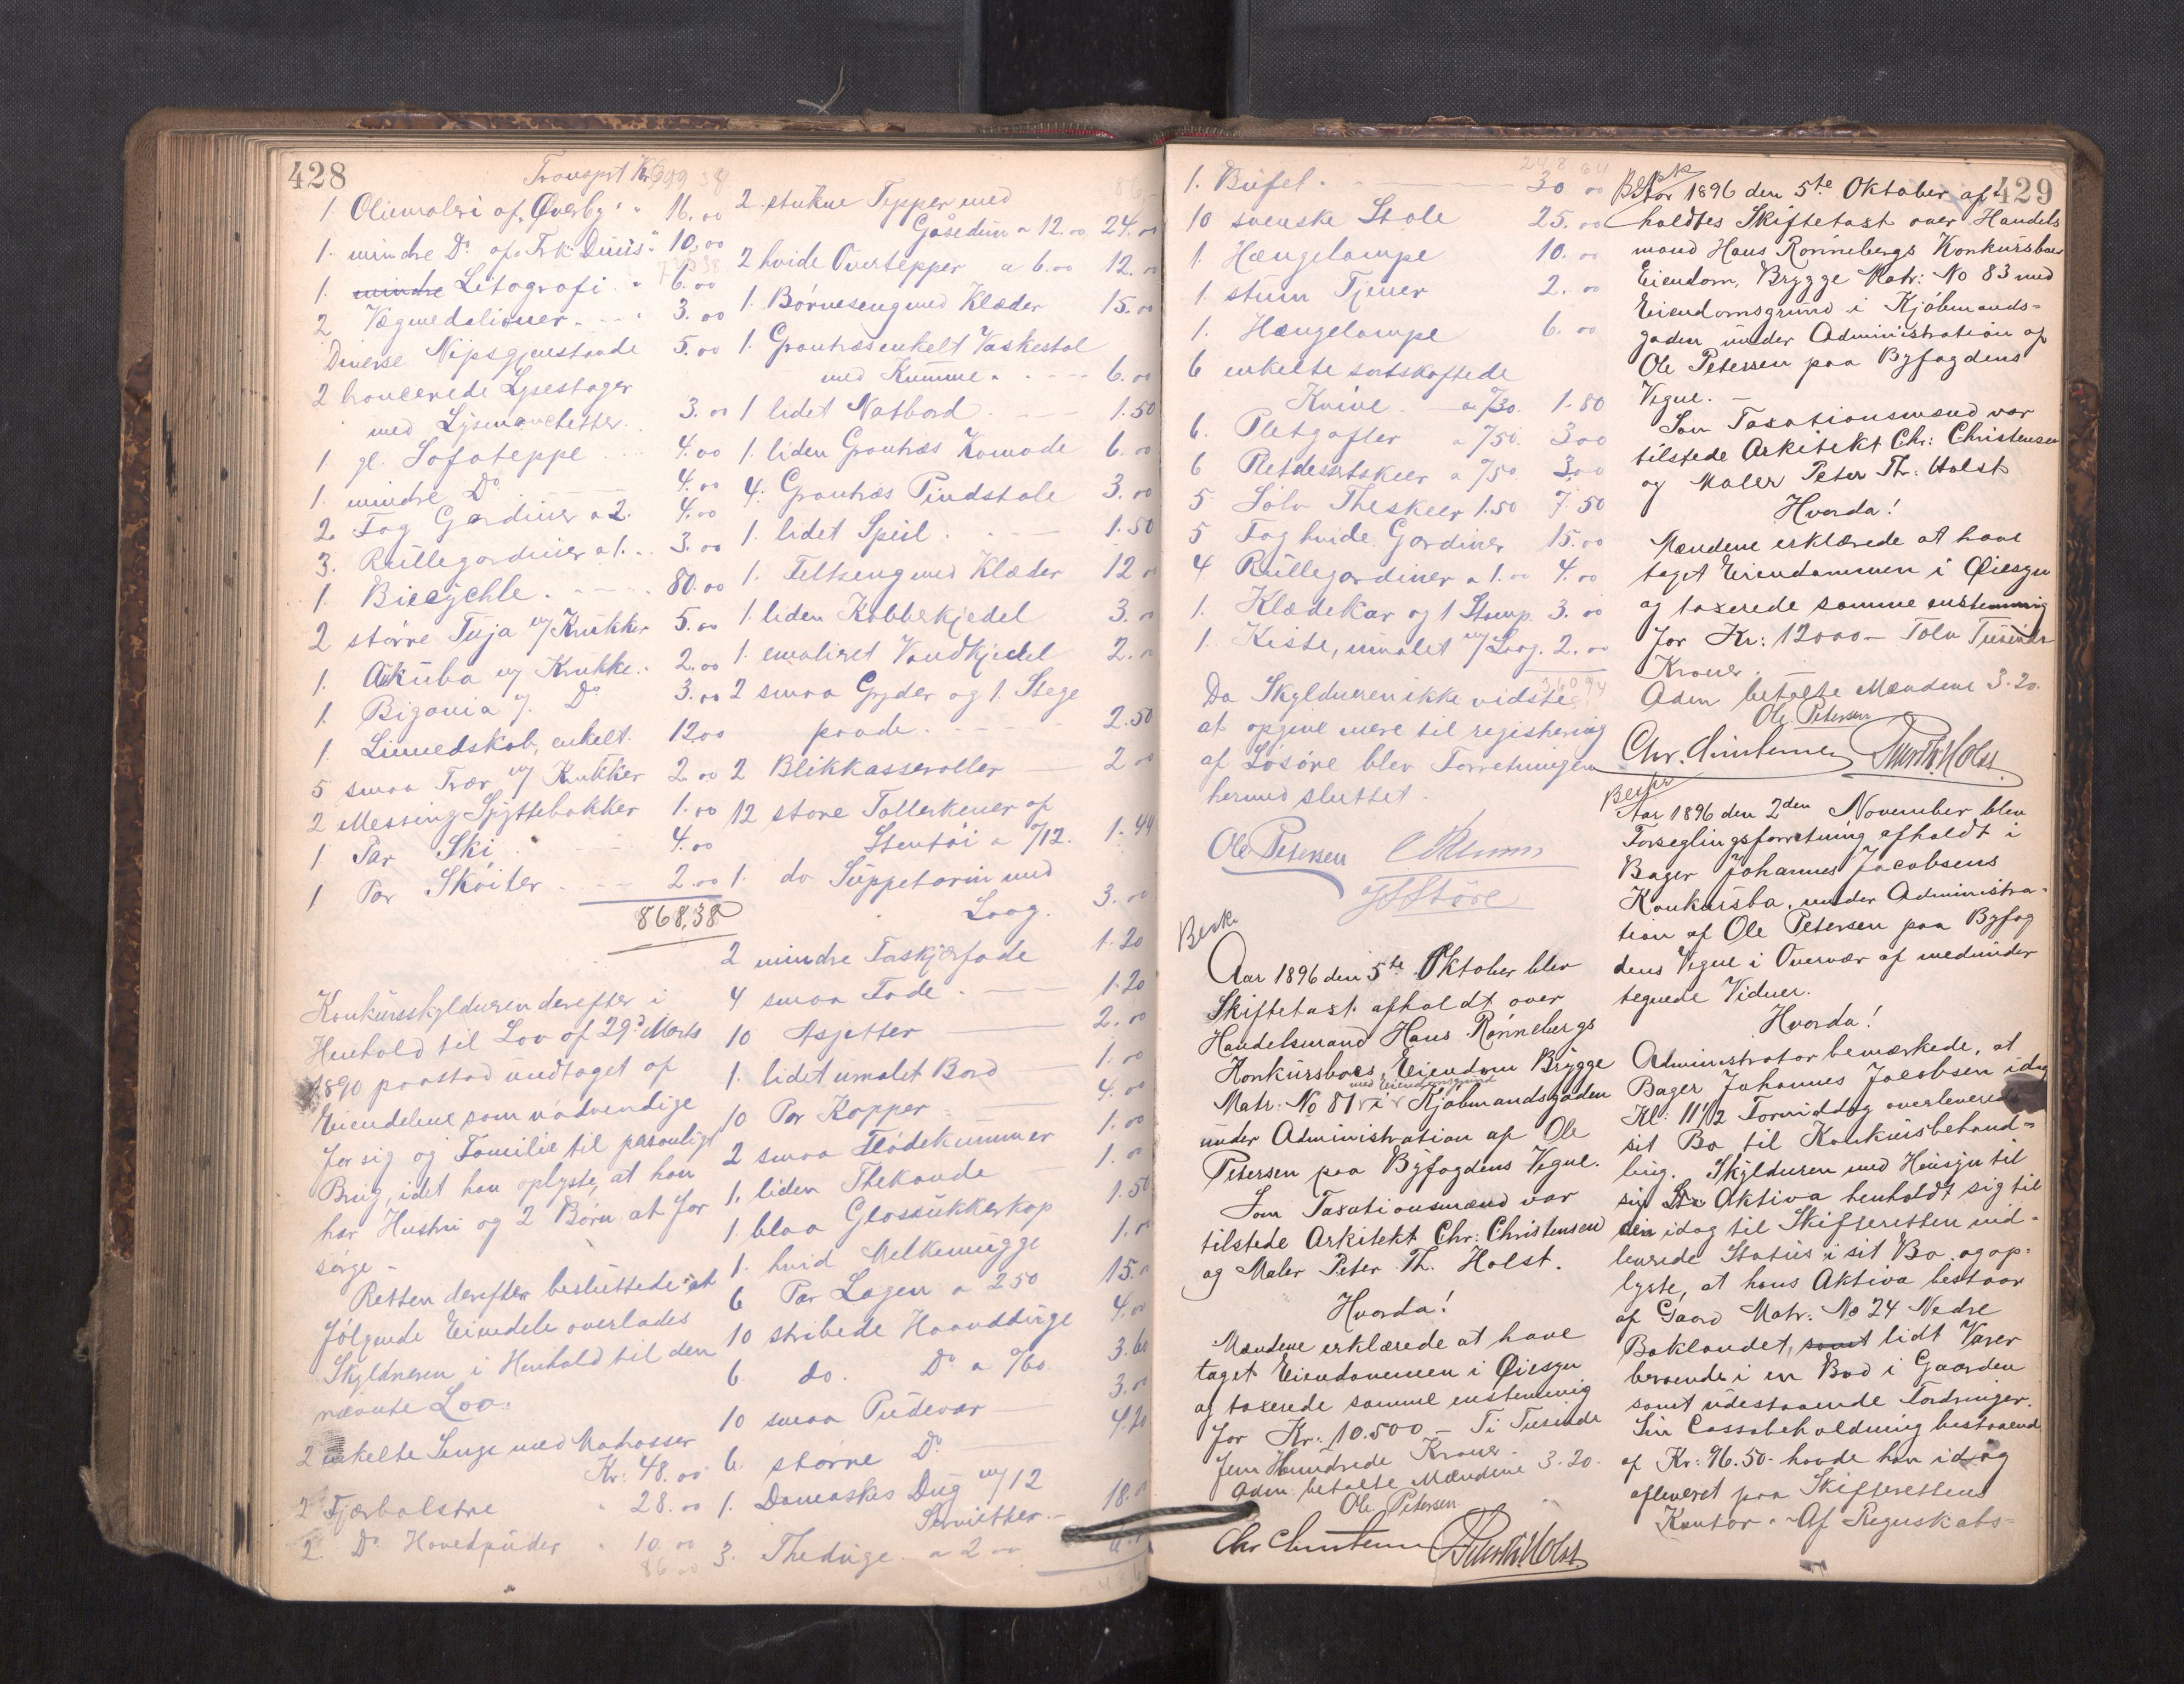 428
Transprt Kr 699 38
1. Oliemaleri af "Øverby" " 16.00
1. mindre Do af "Frk: Duus" " 10.00
1. mindre Litografi " 6.00
2 Vægmedalioner " 3.00
Diverse Nipsgjenstande 5.00
2 broncerede Lysestager
med Lysmanchetter. 3.00
1 gl. Sofateppe 4.00
1. mindre Do 4.00
2. Fag Gardiner a 2. 4.00
3. Rullegardiner a 1. 3.00
1. Biecychle. 80.00
2 større Tuja m/ Krukker 5.00
1. Akuba m/ Krukke. 2.00
1 Bigonia m/. Do 3.00
1. Linnedskab, enkelt. 12.00
5 smaa Trær m/ Krukker 2.00
2 Messing Spyttebakker 1.00
1 Par Ski 4.00
1 Par Skøiter 2.00
868,38
Konkursskylderen derefter i
Henhold til Lov af 29d Marts
1890 paastod undtaget af
Eiendelene som nødvendige
for sig og Familie til personligt
Brug, idet han oplyste, at han
har Hustru og 2 Børn at for
sørge -
Retten derefter besluttede at
følgende Eiendele overlades
Skyldneren i Henhold til den
nævnte Lov:
2 enkelte Senge med Matrasser
Kr: 48.00
2 Fjærbolstre " 28.00
2. Do Hovedpuder " 10.00
86 00
86.-
2 stukne Tepper med
Gåsedun a 12.00 24.00
2 hvide Overtepper a 6.00 12.00
1. Børneseng med Klæder 15.00
1. Grantræs enkelt Vaskestol
med Kumme. 6.00
1 lidet Natbord 1.50
1. liden Grantræs Komode 6.00
4. Grantræs Pindstole 3.00
1. lidet Speil. 1.50
1. Feltseng med Klæder 12 00
1. liden Kobberkjedel 3.00
1. emaliret Vandkjedel 2.00
2 smaa Gryder og 1. Stege
pande. 2.50
2 Blikkasseroller 2 00
12 store Tallerkener af
Stentøi a "/12. 1.44
1. do Suppeterin med
Laag. 3.00
2 mindre Faskjærfade 1.20
4 smaa Fade. 1.20
10 Asjetter 2.00
1. lidet umalet Bord 1.00
10 Par Kopper 4.00
2 smaa Flødekummer 1.00
1. liden Thekande 1.00
1 blaa Glassukkerkop 1.50
1. hvid Melkemugge 1.00
6 Par Lagen a 2.50 15.00
10 stribede Haandduge 4.00
6. do. Do a "/60 3.60
10 smaa Pudevar 3.00
6. større Do 4.20
1. Damaskes Dug m/12
Servietter. 18.00
3. Theduge. a 2 00
248 64
1. Bufet. 30 00
10 svenske Stole 25.00
1. Hængelampe 10.00
1. stum Tjener 2.00
1. Hængelampe 6.00
6 enkelte sortskaftede
Knive a "/30. 1.80
6. Pletgafler a "/50. 3.00
6 Pletdesertskeer a "/50 3.00
5 Sølv Theskeer 1.50 7.50
5 Fag hvide Gardiner 15.00
4 Rullegardiner a 1.00 4.00
1. Klædekar og 1 Stamp. 3.00
1. Kiste, umalet m/ Laag. 2.00
360 94
Da Skylderen ikke vidste
at opgive mere til registrering
af Løsøre blev Forretningen
hermed sluttet.
Ole Petersen
Besk
Aar 1896 den 5te Oktober blev
Skiftetaxt afholdt over
Handelsmand Hans Rønnebergs
Konkursboes Eiendom Brygge
med Eiendomsgrund
Matr. No 81 i Kjøbmandsgaden
under Administration af Ole
Petersen paa Byfogdens Vegne.
Som Taxationsmænd var
tilstede Arkitekt Chr: Christensen
og Maler Peter Th. Holst.
Hvorda!
Mændene erklærede at have
taget Eiendommen i Øiesyn
og taxerede samme enstemmig
for Kr: 10.500 - Ti Tusinde
fem Hundrede Kroner -
Adm. betalte Mændene 3.20.
Ole Petersen
Chr Christensen Peter Th. Holst
429
Besk
Aar 1896 den 5te Oktober af-
holdtes Skiftetaxt over Handels
mand Hans Rønnebergs Konkursboes
Eiendom, Brygge Matr: No 83 med
Eiendomsgrund i Kjøbmands=
gaden under Administration af
Ole Petersen paa Byfogdens
Vegne. -
Som Taxationsmænd var
tilstede Arkitekt Chr: Christensen
og Maler Peter Th. Holst
Hvorda!
Mændene erklærede at have
taget Eiendommen i Øiesyn
og taxerede samme enstemmig
for Kr: 12000 - Tolv Tusinde
Kroner -
Adm betalte Mændene 3.20.
Ole Petersen
Chr. Christensen Peter Th. Holst.
Besk
Aar 1896 den 2den November blev
Forseglingsforretning afholdt i
Bager Johannes Jacobsens
Konkursbo, under Administra-
tion af Ole Petersen paa Byfog
dens Vegne i Overvær af medunder
tegnede Vidner.
Hvorda!
Administrator bemærkede, at
Bager Johannes Jacobsen idag
Kl: 11 1/2 Formiddag overleverede
sit Bo til Konkursbehand=
ling. Skylderen med Hensyn til
sin Aktiva henholdt sig til
den idag til Skifteretten ind-
leverede Status i sit Bo og op-
lyste, at hans Aktiva bestaar
af Gaard Matr. No 24 Nedre
Baklandet, samt lidt Varer
beroende i en Bod i Gaarden
samt udestaaende Fordringer.
Sin Cassabeholdning bestaaende
af Kr: 96.50 havde han idag
afleveret paa Skifterettens
Kontor. Af Regnskabs=